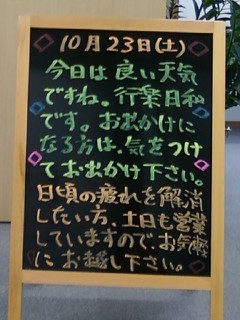 10月23日(土)
今日は良い天気
ですね。行楽日和
です。お出かけに
なる方は、気をつけ
ておでかけ下さい。
日頃の疲れを解消
したい方、土日も営業
していますので、お気軽
にお越し下さい。